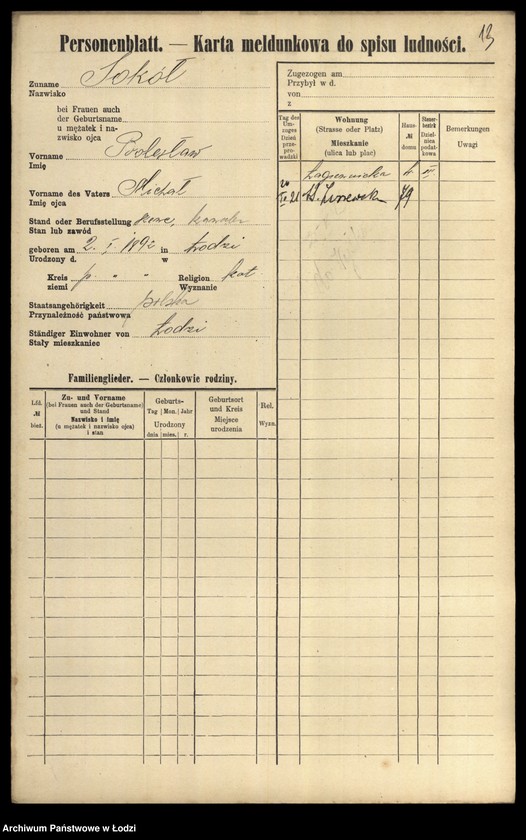 13
Personenblatt. — Karta meldunkowa do spisu ludności.
Zuname Sokół
Nazwisko
bei Frauen auch
der Geburtsname
u mężatek i na-
zwisko ojca
Vorname Bolesław
Imię
Vorname des Vaters Michał
Imię ojca
Stand oder Berufsstellung
Stan lub zawód
geboren am 2. I 1892 in Łodzi
Urodzony d. w
Kreis p. " " Religion kat
ziemi Wyznanie
Staatsangehörigkeit polska
Przynależność państwowa
Ständiger Einwohner von Łodzi
Stały mieszkaniec
Zugezogen am
Przybył w d.
von
z
Tag des Um-zuges Dzień prze-prowadzki
Wohnung
(Strasse oder Platz)
Mieszkanie
(ulica lub plac)
Haus-
№
domu
Steuer-bezirk Dziel-nica podat-kowa
Bemerkungen
Uwagi
Łagiewnicka 4 III
20 II 21 79
Familienglieder. — Członkowie rodziny.
Lfd.
№
bież.
Zu- und Vorname
(bei Frauen auch der Geburtsname)
und Stand
Nazwisko i imię
(u mężatek i nazwisko ojca)
i stan
Geburts-
Tag Mon. Jahr
Urodzony
dnia mies. r.
Geburtsort
und Kreis
Miejsce
urodzenia
Rel.
Wyzn.
Archiwum Państwowe w Łodzi